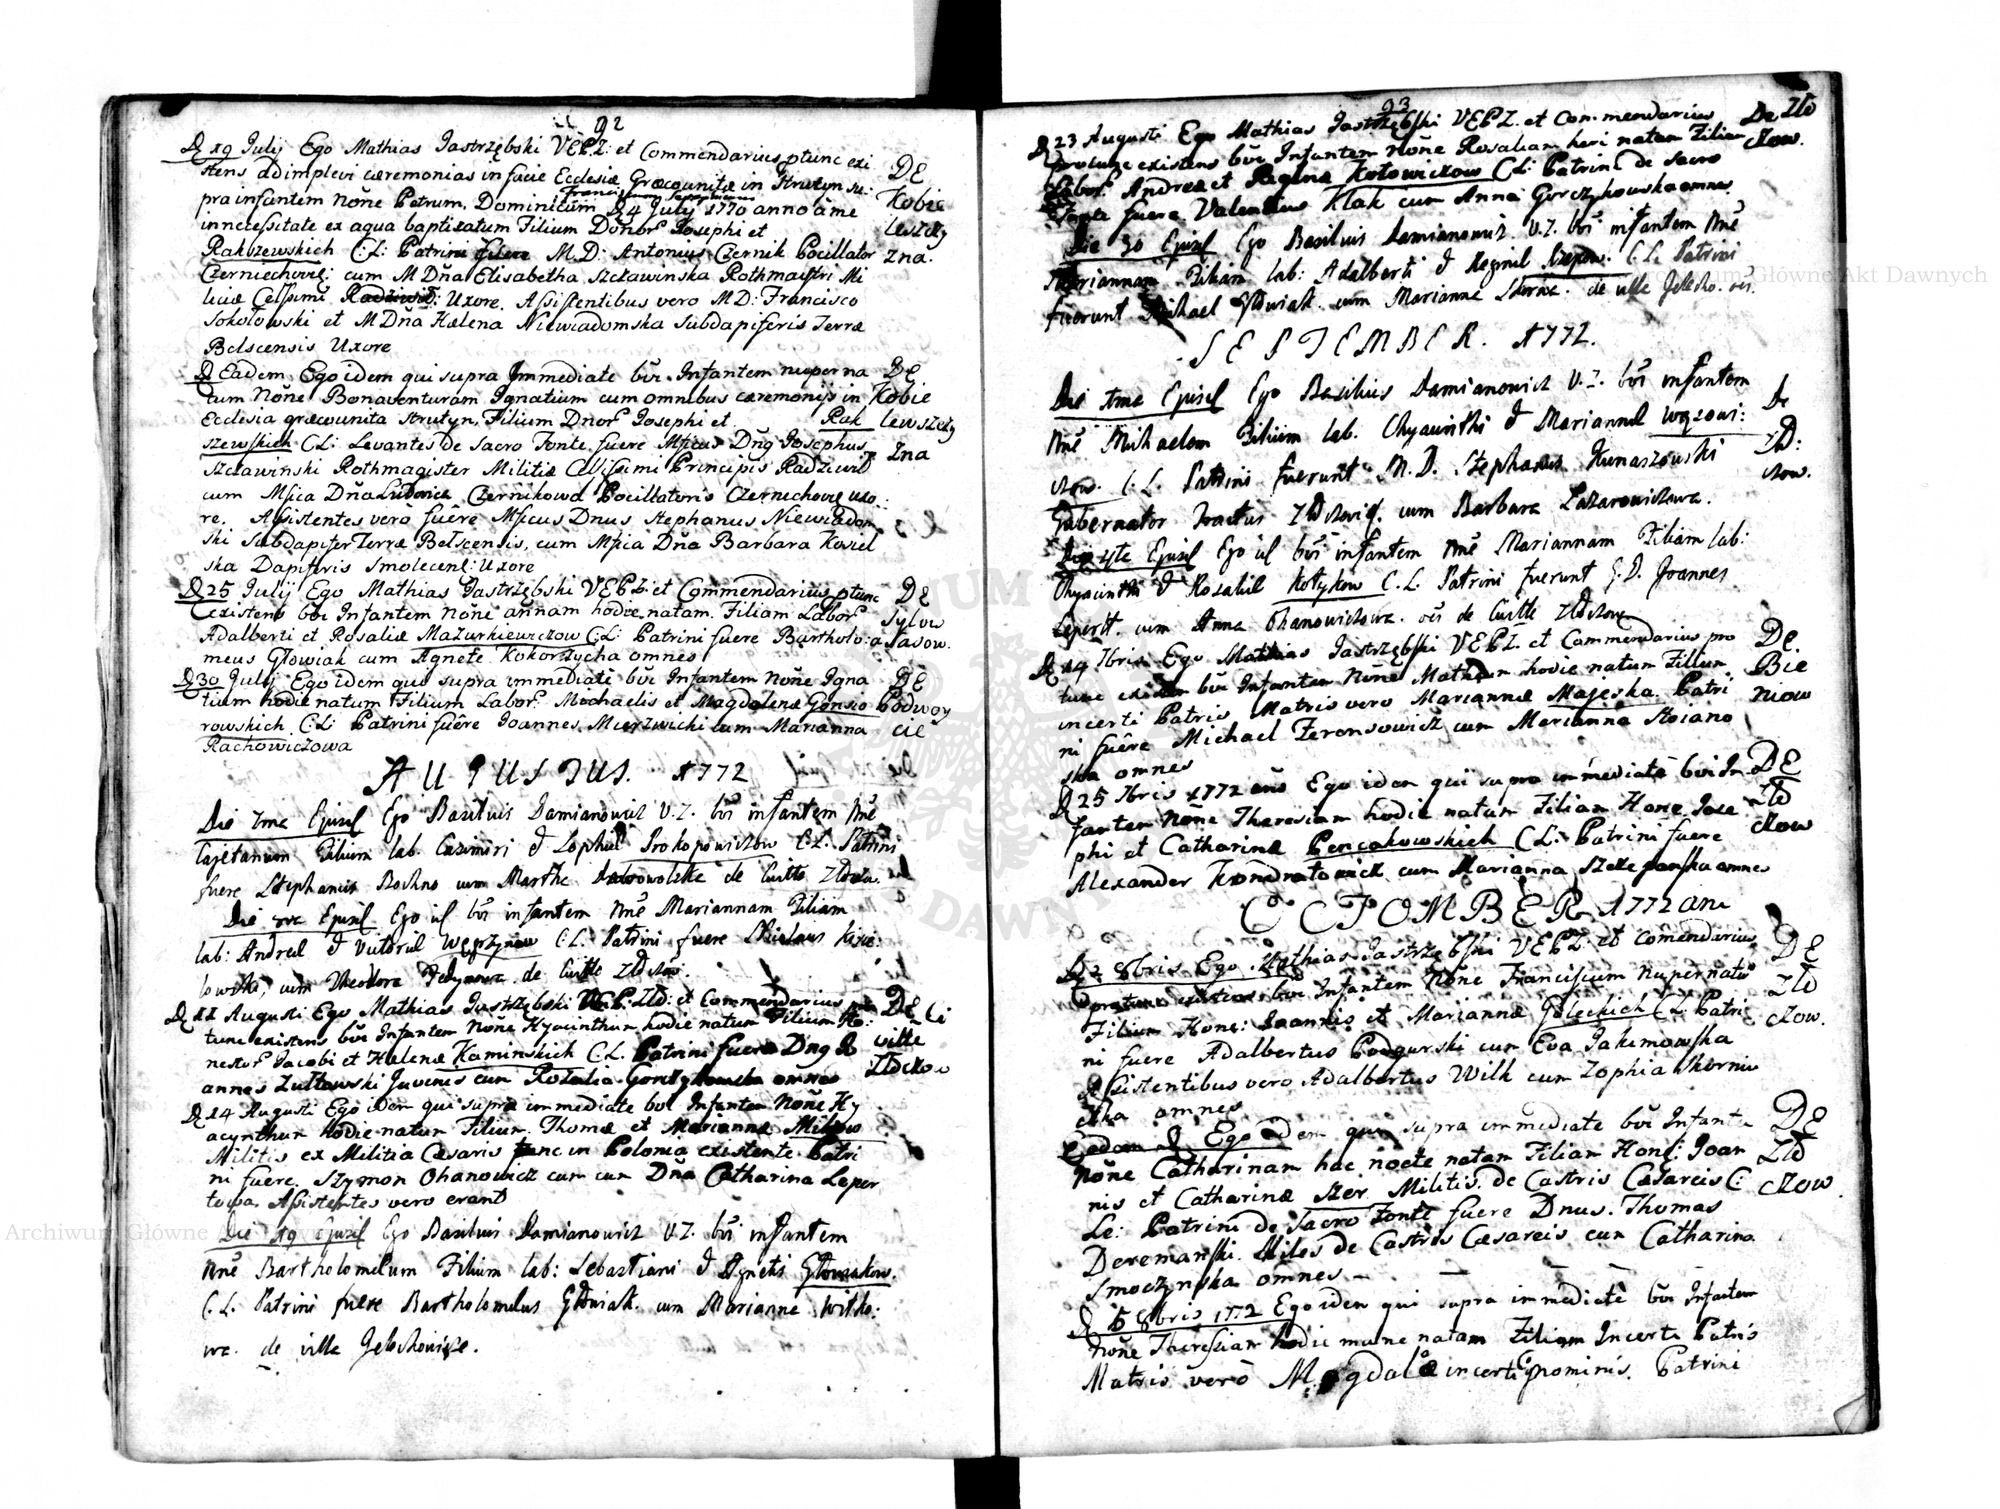 92
D 19 July Ego Mathias Jastrzębski VEPZ: et Commendarius ptunc exi
stens adimplevi cæremonias in facie Ecclesiæ Græcounitæ in Strutyn su:
pra infantem Nōne Patrum, Dominicum D 4 July 1770 anno a me
in necessitate ex aqua baptizatum Filium Donor Josephi et
Rakszewskich C:L: Patrini fuere M.D: Antonius Czernik Pocillator
Czerniechovię: cum M Dña Elisabetha Szcławinska Rothmaistri Mi
liciæ Celssimi Radziwił: Uxore. Assistentibus vero M D: Francisco
Sokołowski et M Dña Helena Niewiadomska Subdapiferis Terræ
Belscensis Uxore
DE
Kobie
leszczy
zna.
D Eadem Ego idem qui supra Immediate bvi Infantem nuper na
tum Nōne Bonaventuram Ignatium cum omnibus cæremonijs in
Ecclesia græcounita Strutyn, Filium Dnor Josephi et Rak
szewskich C:L: Levantes de Sacro Fonte fuere Mficus Dng Josephus
Szcławinski Rothmagister Militiæ Celssimi Principis Radziwił
cum Mfica Dña Ludovica Czernikowa Pocillatoris Czerniechovię uxo
re. Assistentes verò fuêre Mficus Dnus Stephanus Niewiadom
ski Subdapifer Terræ Belscensis, cum Mfica Dña Barbara Kosiel
ska Dapiferis Smolecens: Uxore
DE
Kobie
lewszczy
zna
D 25 July Ego Mathias Jastrzębski VEPZ: et Commendarius ptunc
existens bvi Infantem Nōne annam hodie natam. Filiam Labor
Adalberti et Rosaliæ Mazurkiewiczow C:L: Patrini fuere Bartholo:
meus Głowiak cum Agnete Kokorzycha omnes
DE
Sylow
a Sasow.
D 30 July Ego idem qui supra immediatè bvi Infantem Nōne Igna
tium hodie natum Filium Labor. Michaelis et Magdalenæ Gonsio
rowskich C:L: Patrini fuêre Joannes Mierzwicki cum Marianna
Rachowiczowa
DE
Podwoy
cie
AUGUSTUS. 1772
Die 7ma Ejusd Ego Basilius Damianowicz V.Z. bvi infantem Nnē
Cajetanum Filium lab. Casimiri & Sophiæ Prokopowiczow C.L. Patrini
fuere Stephanus Bochno cum Martha de Civitte
Die Ejusd Ego id bvi infantem Nnē Mariannam Filiam
lab: Andreæ & Victoriæ Węgrzynow C.L. Patrini fuere
cum Theodora de Civitte Złoczow.
D 11 Augusti Ego Mathias Jastrzębski et Commendarius pro
tunc existens bvi Infantem Nōne Hyacinthum hodie natum Filium Ho:
nestor Jacobi et Helenæ Kaminskich C.L. Patrini fuere Dng Jo
annes Zułtawski Juvenis cum Rozalia omnes
DE Ci
vitte
Złoczow
D 14 Augusti Ego idem qui supra immediate bvi Infantem Nōne Hy
acynthum hodie natum Filium Thomæ et Marianna
Militis ex Militia Cæsaris tunc in Polonia existente. Patri
ni fuere. Szymon Ohanowicz cum cum Dña Catharina Leper
towa. Assistentes vero erant
Die 19 Ejusd Ego Basilius Damianowicz V.Z. bvi infantem
Nnē Bartholomeum Filium lab: Sebastiani & Agnetis Głowiakow.
C.L. Patrini fuere Bartholomeus Głowiak cum Marianna Witko:
wa. de villa Jelechowice.
93
D 23 Augusti Ego Mathias Jastrzębski VEPZ. et Commendarius
protunc existens bvi Infantem Nōne Rosaliam heri natam Filiam
Labor. Andreæ et Reginæ Kotowiczow C:L: Patrini de Sacro
Fonte fuere Valentius Klak cum Anna Gorczykowska omnes
De Zło
czow.
Die 30 Ejusd Ego Basilius Damianowicz V.Z. bvi infantem Nnē
Mariannam Filiam lab: Adalberti & Reginæ C.L. Patrini
fuerunt Michael Głowiak cum Marianna de villa
SEPTEMBER. 1772.
Die 1ma Ejusd Ego Basilius Damianowicz V.Z. bvi infantem
Nnē Michaelem Filium lab. Chyacinthi & Mariannæ Wąsowi:
czow. C.L. Patrini fuerunt M.D. Stephanus Kunaszowski
Gubernator Tractus cum Barbara Lazarowiczowa.
De
Zło:
czow.
Ejusd Ego id bvi infantem Nnē Mariannam Filiam lab:
Chyacinthi & Rosaliæ Kotykow C.L. Patrini fuerunt G.D. Joannes
Lepertt. cum Anna Ohanowiczowa. oēs de Civitte Złoczow
D 14 7bris Ego Mathias Jastrzębski VEPZ. et Commendarius pro
tunc existen bvi Infantem Nōne Matheum hodie natum Filium
incerti Patris Matris vero Mariannæ Majeska. Patri
ni fuêre Michael Feronsowicz cum Marianna Stoiano
ska omnes
De
Bie
niow
D 25 7bris 1772 ano Ego idem qui supra immediatè bvi In
fantem Nōne Theresiam hodie natum Filiam Hone Jose
phi et Catharinæ Pencakowskich C:L: Patrini fuere
Alexander Kondratowicz cum Marianna omnes
DE
Zło
czow
OCTOMBER 1772 ani
D 2 8bris Ego Mathias Jastrzębski VEPZ: et Comendarius
protunc existens bvi Infantem Nōne Francissum nuper natū
Filium Hone: Joannis et Mariannæ Goleckich C:L: Patri
ni fuere Adalbertus Podgurski cum Eva Jakimowska
Assistentibus vero Adalbertus Wilk cum Zophia Skorniw
ska omnes
DE
Zło
czow.
Eadem D Ego idem qui supra immediate bvi Infante
Nōne Catharinam hac nocte natam Filiam Hone: Joan
nis et Catharinæ Szer Militis de Castris Cæsareis C:
Le: Patrini de Sacro Fonte fuere Dnus. Thomas
Deremanski. Miles de Castris Cæsareis cum Catharina
Smoczynska omnes
DE
Zło
czow.
D 5 8bris 1772 Ego iden qui supra immediatè bvi Infantem
Nōne Theresiam hodie mane natam Filiam Incerti Patris
Matris verò Magdalæ incerti Cognominis. Patrini
Archiwum Główne Akt Dawnych